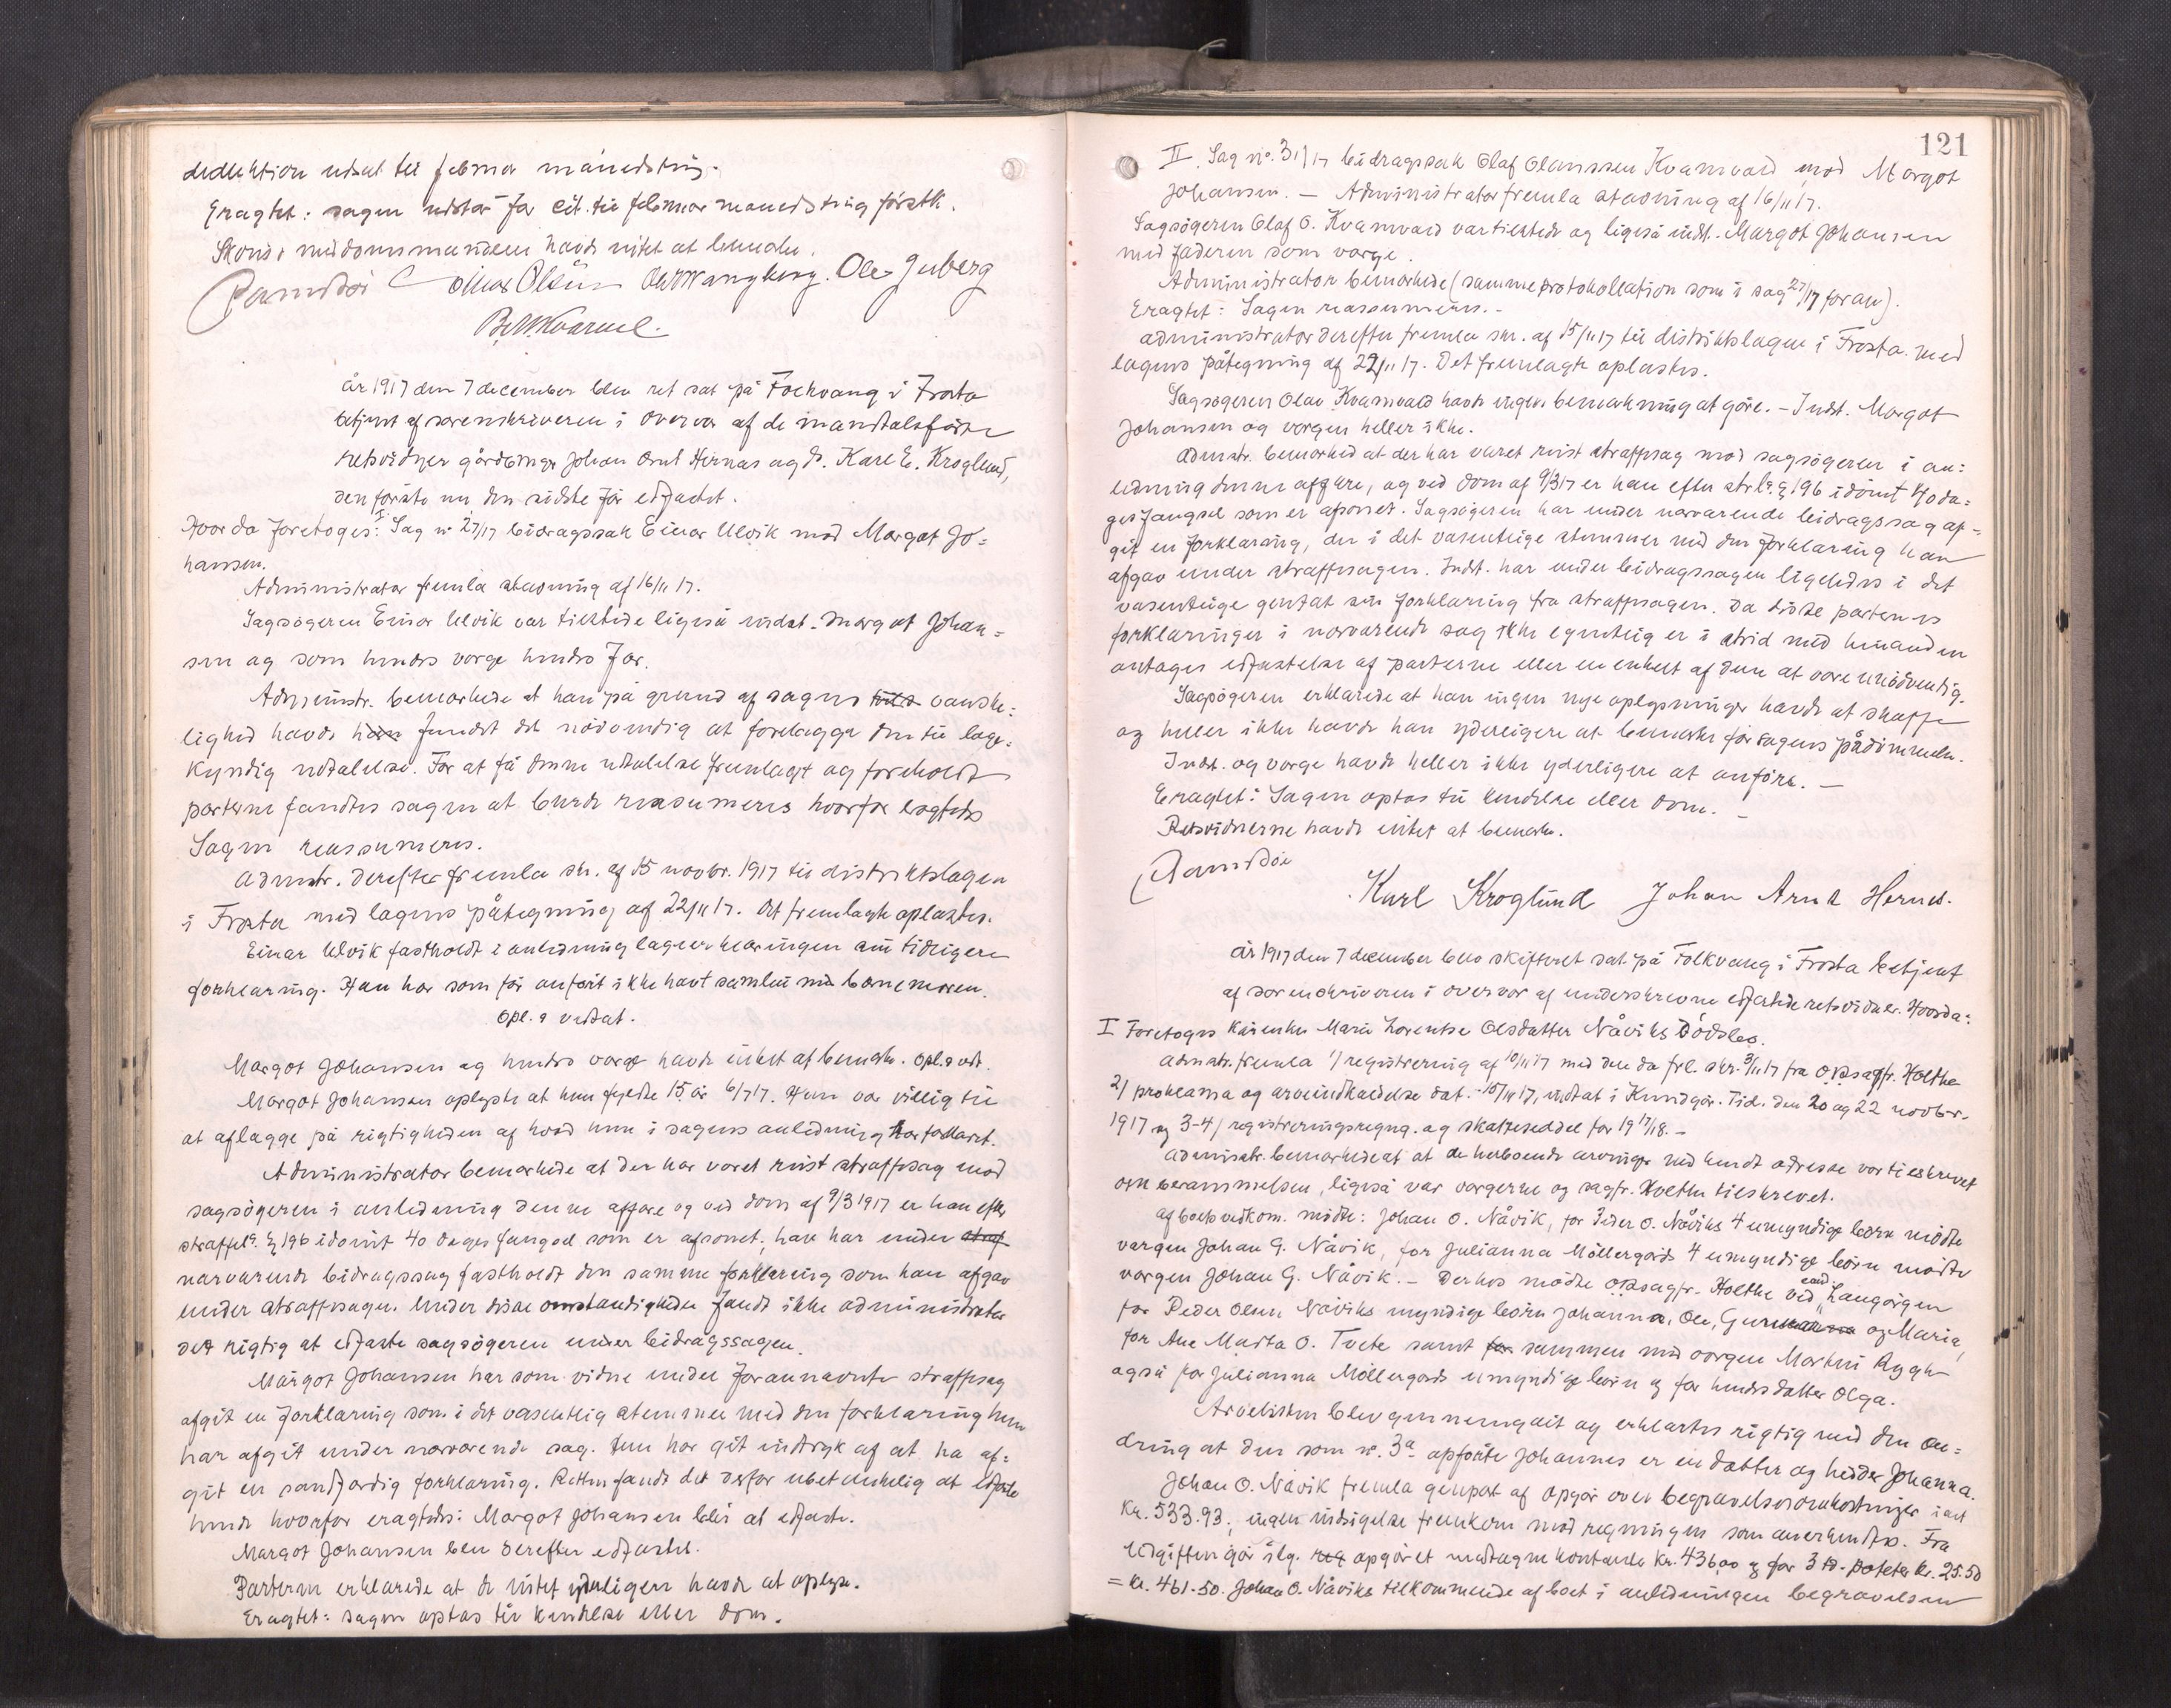 deduktion udsat til februar månedsting.
Eragtet: sagen udstår for cit. til februar maanedsting förstk.
Skonsr meddomsmændene havde intet at bemærke.
Ole Juberg
år 1917 den 7 december blev ret sat på Folkvang i Frosta
betjent af sorenskriveren i overvær af de mandtalsförte
retsvidner gårdbruger Johan Arnt Hernæs og do. Karl E. Kroglund,
den förste nu, den sidste för edfæstet.
Hvor da foretoges: I. Sag nr 27/17 bidragssak Einar Ulvik mod Margot Jo=
hansen.
Administrator fremla stævning af 16/11 17.
Sagsögeren Einar Ulvik var tilstede ligeså indst. Margot Johan=
sen og som hendes værge hendes far.
Administr. bemærkede at han på grund af sagens tvils vanske:
lighed havde han fundet det nödvendig at forelægge den til læge:
kyndig udtalelse. For at få denne udtalelse fremlagt og foreholdt
parterne fandtes sagen at burde reassumeres hvorfor eragtedes
Sagen reassumeres.
Admstr. derefter fremla skr. af 15 novbr. 1917 til distriktslægen
i Frosta med lægens påtegning af 22/11 17. Det fremlagte oplæstes.
Einar Ulvik fastholdt i anledning lægeerklæringen sin tidligere
forklaring. Han har som för anfört ikke havt samleie med barnemoren.
Opl. & vedtat.
Margot Johansen og hendes værge havde intet at bemærke. Opl. & vedt.
Margot Johansen oplyste at hun fyldte 15 år 6/7 17. Hun var villig til
at aflægge på rigtigheden af hvad hun i sagens anledning har forklaret.
Administrator bemærkede at der har været reist straffesag mod
sagsögeren i anledning denne affære og ved dom af 9/3 1917 er han efter
straffel. § 196 idömt 40 dages fængsel som er afsonet; han har under straf
nærværende bidragssag fastholdt den samme forklaring som han afgav
under straffesagen. Under disse omstændigheder fandt ikke administrator
det rigtig at edfæste sagsögeren under bidragssagen.
Margot Johansen har som vidne under forannævnte straffesag
afgit en forklaring som i det væsentlig stemmer med den forklaring hun
har afgit under nærværende sag. Hun har git indtryk af at ha af=
git en sandfærdig forklaring. Retten fandt det derfor ubetænkelig at edfæste
hende hvorfor eragtedes: Margot Johansen blir at edfæste.
Margot Johansen blev derefter edfæstet.
Parterne erklærede at de intet yderligere havde at oplyse.
Eragtet: sagen optas til kendelse eller dom.
121
II. Sag nr. 31/17 bidragssak Olaf Olaussen Kvamvold mod Margot
Johansen. — Administrator fremla stævning af 16/11 17.
Sagsögeren Olaf O. Kvamvold var tilstede og ligeså indst. Margot Johansen
med faderen som værge.
Administrator bemærkede (samme protokollation som i sag 27/17 foran).
Eragtet: Sagen reassumeres. -
Administrator derefter fremla skr. af 15/11 17 til distriktslægen i Frosta med
lægens påtegning af 22/11 17. Det fremlagte oplæstes.
Sagsögeren Olav Kvamvold havde ingen bemærkning at göre. - Indst. Margot
Johansen og værgen heller ikke.
Admstr. bemærked at der har været reist straffesag mod sagsögeren i an:
ledning denne affære, og ved dom af 9/3 17 er han efter strl. § 196 idömt 40 da:
ges fængsel som er afsonet. Sagsögeren har under nærværende bidragssag af=
git en forklaring, der i det væsentlige stemmer med den forklaring han
afgav under straffesagen. Indst. har under bidragssagen ligeledes i det
væsentlige gentat sin forklaring fra straffesagen. Da disse parternes
forklaringer i nærværende sag ikke egentlig er i strid med hinanden
antages edfæstelse af parterne eller en enkelt af dem at være unödvendig.
Sagsögeren erklærede at han ingen nye oplysninger havde at skaffe
og heller ikke havde han yderligere at bemærke för sagens pådömmelse.
Indst. og værge havde heller ikke yderligere at anföre. —
Eragtet: Sagen optas til kendelse eller dom. -
Retsvidnerne havde intet at bemærke.
Karl Kroglund Johan Arnt Hernes.
år 1917 den 7 december blev skifteret sat på Folkvang i Frosta betjent
af sorenskriveren i overvær af underskrevne edfæstede retsvidner. Hvorda:
I Foretoges kårenke Maria Lorentse Olsdatter Nåviks dödsbo.
Admstr. fremla 1/ registrering af 10/11 17 med den da frl. skr. 3/11 17 fra o.r.sagfr. Holthe
2/ proklama og arveindkaldelse dat. 10/11 17, indtat i Kundgör. Tid. den 20 og 22 novbr.
1917 og 3-4/ registreringsregng. og skatteseddel for 1917/18. -
Administr. bemærkede at de herboende arvinger med kendt adresse var tilskrevet
om berammelsen, ligeså var værgerne og sagfr. Holthe tilskrevet.
Af boets vedkom. mödte: Johan O. Nåvik, for Peder O. Nåviks 4 umyndige börn mödte
værgen Johan G. Nåvik, for Julianna Möllergårds 4 umyndige börn mödte
værgen Johan G. Nåvik. - Derhos mödte o.r.sagfr. Holthe ved cand. Langörgen
for Peder Olsen Nåviks myndige börn Johanna, Ole, og Maria,
for Ane Marta O. Tvete samt for sammen med værgen Martin Rygh
også for Julianna Möllergårds umyndige börn og for hendes datter Olga.
Arvelisten blev gennemgåt og erklærtes rigtig med den æn=
dring at den som nr. 3a opförte Johannes er en datter og hedder Johanna.
Johan O. Nåvik fremla genpart af opgör over begravelsesomkostninger ialt
kr. 533.93; ingen indsigelse fremkom mod regningen som anerkendtes. Fra
Udgiften går iflg. reg opgöret modtagne kontante kr. 436,00 og for 3 td. poteter kr. 25.50
= kr. 461.50. Johan O. Nåviks tilkommende af boet i anledningen begravelsen